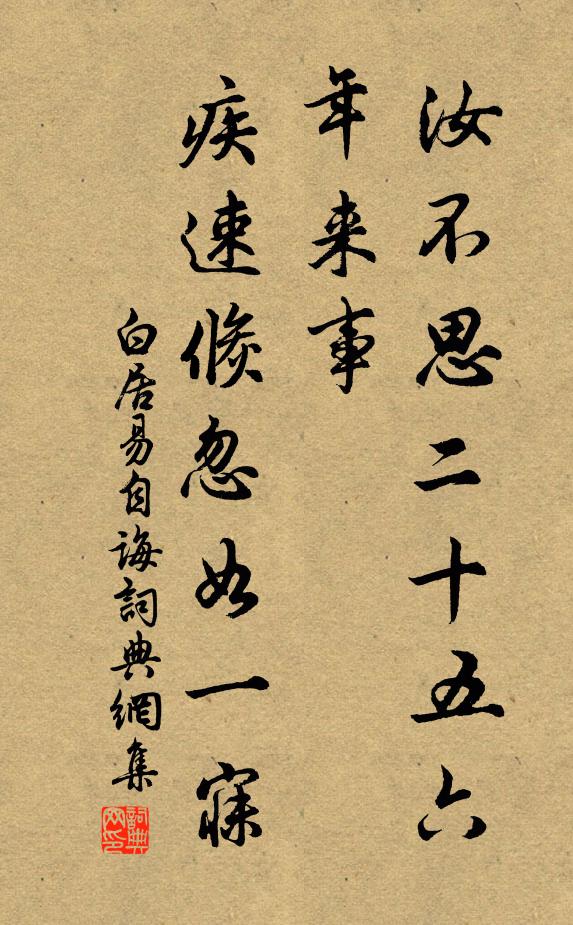 汝不思二十五六
年来事
疾速倏忽如一寐
白居易自诲詞典網集
詞典網印